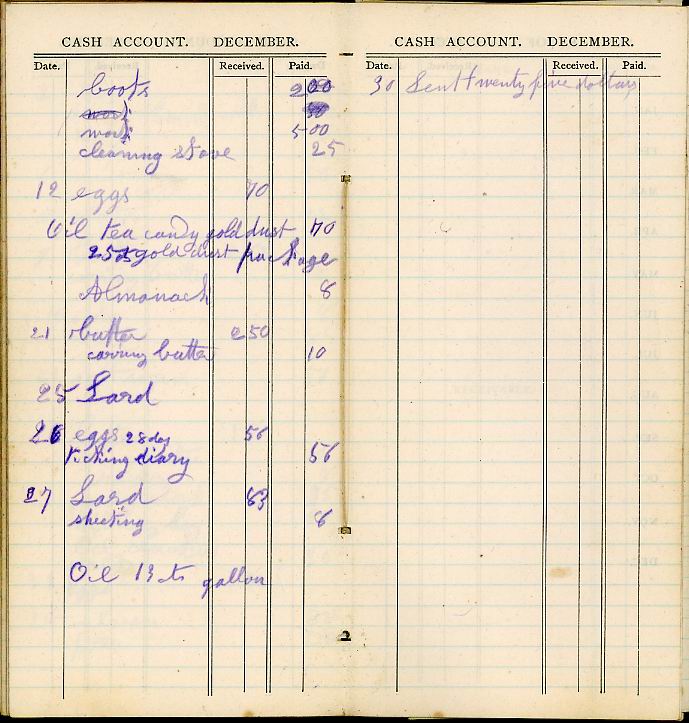 CASH ACCOUNT. DECEMBER.
Date. Received. Paid.
boots 200
work 50
work 500
cleaning stove 25
12 eggs 70
Oil tea candy gold dust 70
25 gold dust package
Almanack 8
21 butter 250
carving butter 10
25 Lard
26 eggs 28 doz 56
ticking diary 56
27 Lard 63
sheeting 8
Oil 13 cts gallon
2
CASH ACCOUNT. DECEMBER.
Date. Received. Paid.
30 Sent twenty five dollars